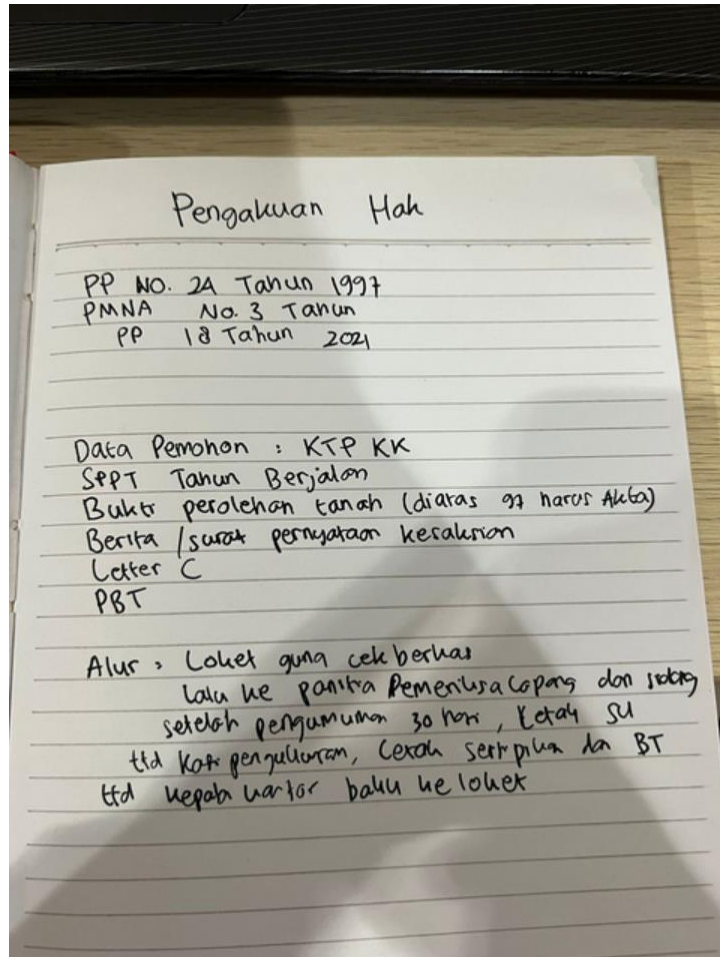 Pengakuan Hak
PP NO. 24 Tahun 1997
PMNA No. 3 Tahun
PP 18 Tahun 2021
Data Pemohon : KTP KK
SPPT Tahun Berjalan
Bukti perolehan tanah (diatas 97 harus Akta)
Berita / surat pernyataan kesaksian
Letter C
PBT
Alur : Loket guna cek berkas
Lalu ke panitra Pemeriksa Lapang dan sidang
setelah pengumuman 30 hari, Cetak SU
ttd Kasi pengukuran, Cetak sertipikat dan BT
ttd kepala kantor baku ke loket